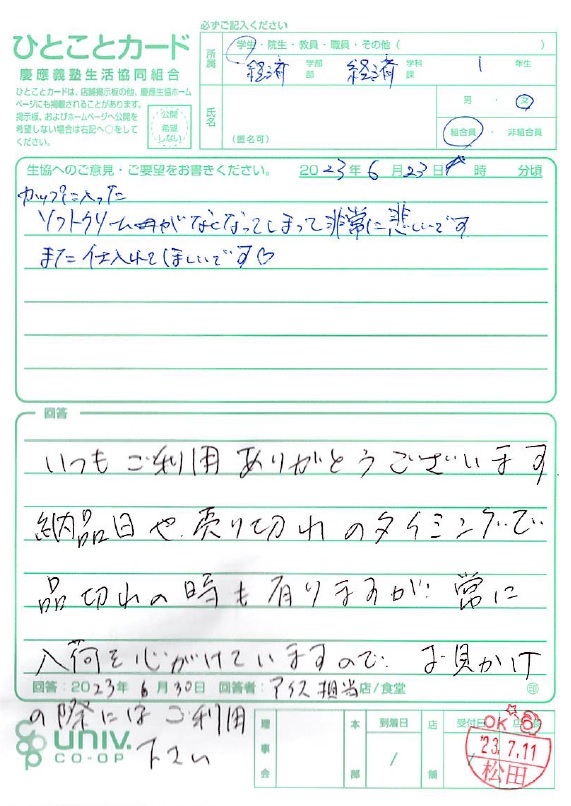 必ずご記入ください
ひとことカード
慶應義塾生活協同組合
ひとことカードは、店舗掲示板の他、慶應生協ホームページにも掲載されることがあります。
掲示板、およびホームページへ公開を
希望しない場合は右記へ○をして
ください。
公開
希望
しない
所属
学生・院生・教員・職員・その他（　　）
経済 学部 部 経済 学科 課 1 年生
氏名
(匿名可)
男・女
組合員・非組合員
生協へのご意見・ご要望をお書きください。 2023年6月23日 時 分頃
カップに入った
ソフトクリーム
なくなってしまって非常に悲しいです
また仕入れてほしいです♡
回答
いつもご利用ありがとうございます
納品日や売り切れのタイミングで
品切れの時も有りますが、常に
入荷を心がけていますので、お見かけ
回答：2023年6月30日 回答者：アイス担当店/食堂 印
の際にはご利用
下さい
UNIV.
CO-OP
理事会
本部
到着日
/
店舗
受付日
/
OK
'23.7.11
松田